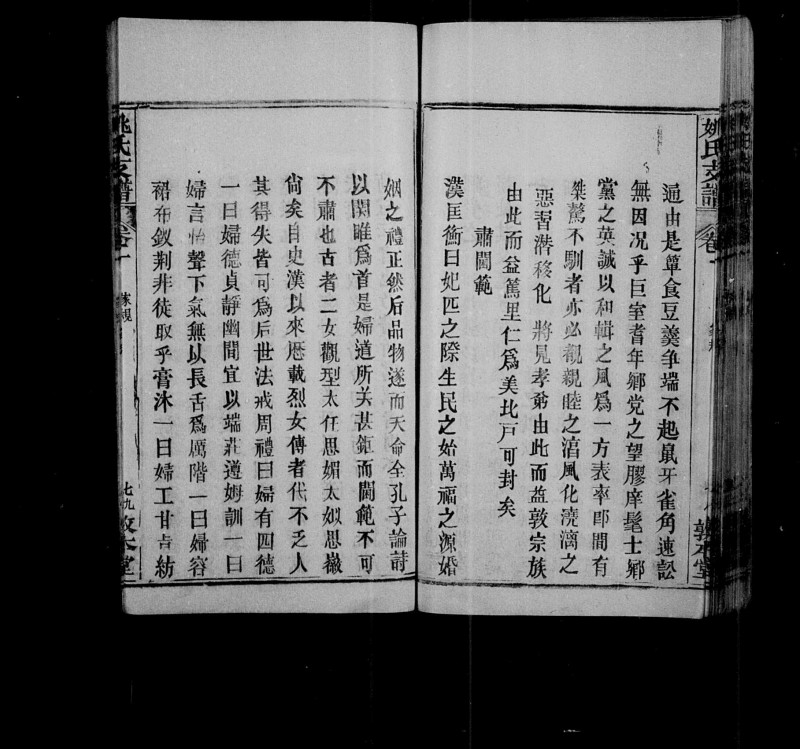 姚氏支譜 卷一
敦本堂
逼由是簞食豆羹爭端不起鼠牙雀角速訟
無因况乎巨室耆年鄉党之望膠庠髦士鄉
黨之英誠以和輯之風爲一方表率即間有
桀驁不馴者亦必觀親睦之滛風化澆漓之
惡習潛移化 將見孝弟由此而益敦宗族
由此而益篤里仁爲美比戸可封矣
肅閫範
漢匡衡曰妃匹之際生民之始萬福之源婚
姻之禮正然后品物遂而天命全孔子論詩
以関雎爲首是婦道所关甚鉅而閫範不可
不肅也古者二女觀型太任思媚太姒思嶶
尙矣自史漢以來厯載烈女傳者代不乏人
其得失皆可爲后世法戒周禮曰婦有四德
一曰婦德貞靜幽閒宜以端莊遵姆訓一曰
婦言怡聲下氣無以長舌爲厲階一曰婦容
裙布釵荆非徒取乎膏沐一曰婦工甘旨紡
姚氏支譜 卷一
家規
七九
敦本堂